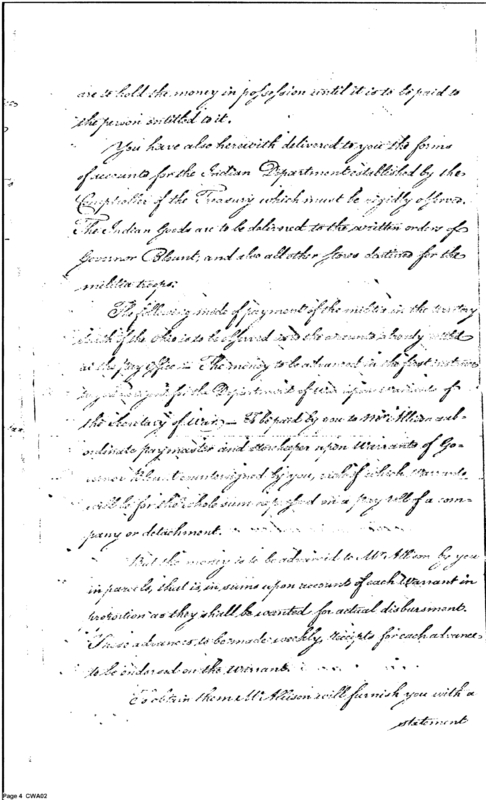 are to hold the money in possession until it is to be paid to
the person entitled to it.
You have also herewith delivered to you the forms
of accounts for the Indian Department established by the
Comptroller of the Treasury which must be rigidly observed.
The Indian Goods are to be delivered to the written orders of
Governor Blount, and also all other stores destined for the
militia troops.
The following mode of payment of the militia in the territory
south of the Ohio is to be observed and the accounts
at the pay office — The money to be advanced in the first instance
to you for the Department of War upon Warrants of
the Secretary of War, — To be paid by you to Mr Allison sub-
ordinate paymaster and storekeeper upon Warrants of Go-
vernor Blount countersigned by you, each of which Warrants
will be for the whole sum expressed in a pay roll of a com-
pany or detachment.
But the money is to be advanced to Mr Allison by you
in parcels, that is, in sums upon account of each Warrant in
proportion as they shall be wanted for actual disbursement.
These advances to be made weekly, receipts for each advance
to be endorsed on the Warrant.
To obtain them Mr Allison will furnish you with a
statement
Page 4 CWA02